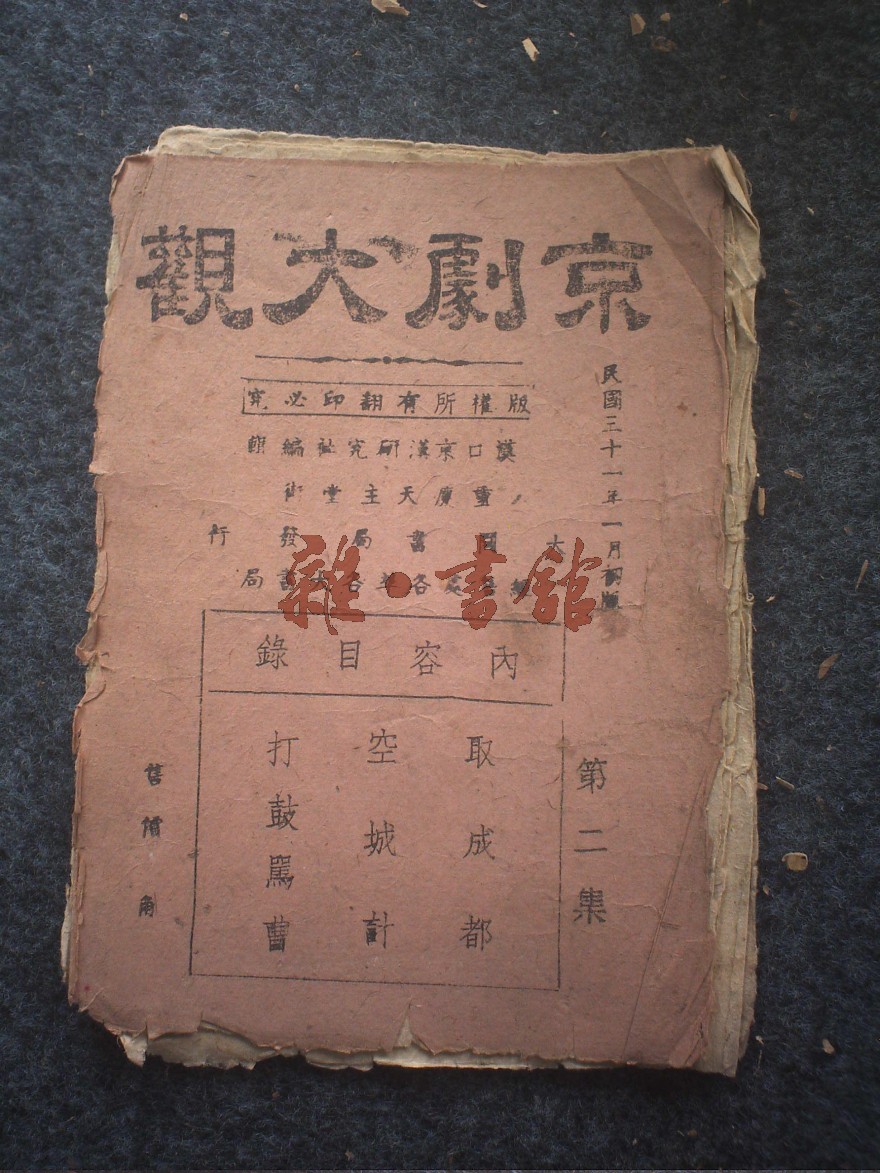 京劇大觀
民國三十一年一月初版
版權所有翻印必究
漢口京漢研究社編輯
重慶天主堂街
大國書局發行
各大書局
雜·書館
內容目錄
第二集
取成都
空城計
打鼓罵曹
售價 角